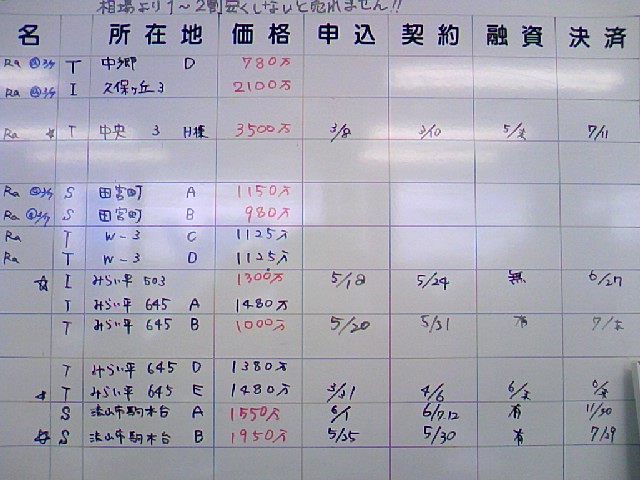 相場より1~2割安くしないと売れません!!
名 所在地 価格 申込 契約 融資 決済
Ra T 中郷 D 780万
Ra I 久保ヶ丘3 2100万
Ra ☆ T 中央 3 H棟 3500万 3/8 3/10 5/末 7/11
Ra S 田宮町 A 1150万
Ra S 田宮町 B 980万
Ra T W-3 C 1125万
Ra T W-3 D 1125万
☆ I みらい平 503 1300万 5/18 5/24 無 6/27
T みらい平 645 A 1480万
T みらい平 645 B 1000万 5/20 5/31 有 7/末
T みらい平 645 D 1380万
☆ T みらい平 645 E 1480万 3/31 4/6 6/末
S 流山市駒木台 A 1550万 6/7.12 有 11/30
☆ S 流山市駒木台 B 1950万 5/25 5/30 有 7/29